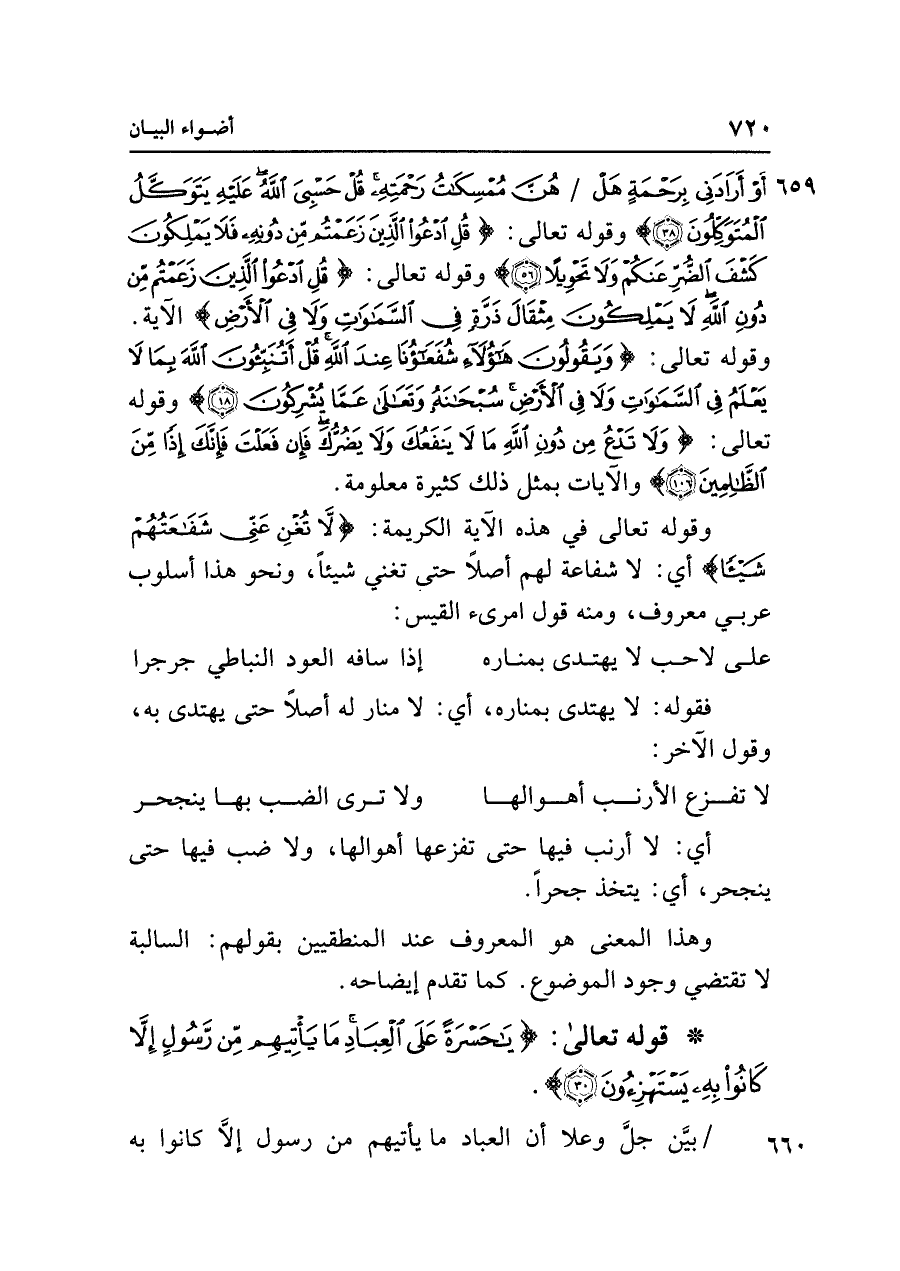 ٧٢٠ أضواء البيان
٦٥٩ أَوْ أَرَادَنِى بِرَحْمَةٍ هَلْ / هُنَّ مُمْسِكَٰتُ رَحْمَتِهِۦ ۚ قُلْ حَسْبِىَ ٱللَّهُ ۖ عَلَيْهِ يَتَوَكَّلُ
ٱلْمُتَوَكِّلُونَ ﴿٣٨﴾﴾ وقوله تعالى: ﴿ قُلِ ٱدْعُوا۟ ٱلَّذِينَ زَعَمْتُم مِّن دُونِهِۦ فَلَا يَمْلِكُونَ
كَشْفَ ٱلضُّرِّ عَنكُمْ وَلَا تَحْوِيلًا ﴿٥٦﴾﴾ وقوله تعالى: ﴿ قُلِ ٱدْعُوا۟ ٱلَّذِينَ زَعَمْتُم مِّن
دُونِ ٱللَّهِ ۖ لَا يَمْلِكُونَ مِثْقَالَ ذَرَّةٍ فِى ٱلسَّمَٰوَٰتِ وَلَا فِى ٱلْأَرْضِ ﴾ الآية.
وقوله تعالى: ﴿ وَيَقُولُونَ هَٰٓؤُلَآءِ شُفَعَٰٓؤُنَا عِندَ ٱللَّهِ ۚ قُلْ أَتُنَبِّـُٔونَ ٱللَّهَ بِمَا لَا
يَعْلَمُ فِى ٱلسَّمَٰوَٰتِ وَلَا فِى ٱلْأَرْضِ ۚ سُبْحَٰنَهُۥ وَتَعَٰلَىٰ عَمَّا يُشْرِكُونَ ﴿١٨﴾﴾ وقوله
تعالى: ﴿ وَلَا تَدْعُ مِن دُونِ ٱللَّهِ مَا لَا يَنفَعُكَ وَلَا يَضُرُّكَ ۖ فَإِن فَعَلْتَ فَإِنَّكَ إِذًا مِّنَ
ٱلظَّٰلِمِينَ ﴿١٠٦﴾﴾ والآيات بمثل ذلك كثيرة معلومة.
وقوله تعالى في هذه الآية الكريمة: ﴿ لَّا تُغْنِ عَنِّى شَفَٰعَتُهُمْ
شَيْـًٔا ﴾ أي: لا شفاعة لهم أصلاً حتى تغني شيئاً، ونحو هذا أسلوب
عربي معروف، ومنه قول امرىء القيس:
على لاحب لا يهتدى بمناره إذا سافه العود النباطي جرجرا
فقوله: لا يهتدى بمناره، أي: لا منار له أصلاً حتى يهتدى به،
وقول الآخر:
لا تفزع الأرنب أهوالها ولا ترى الضب بها ينجحر
أي: لا أرنب فيها حتى تفزعها أهوالها، ولا ضب فيها حتى
ينجحر، أي: يتخذ جحراً.
وهذا المعنى هو المعروف عند المنطقيين بقولهم: السالبة
لا تقتضي وجود الموضوع. كما تقدم إيضاحه.
* قوله تعالىٰ: ﴿ يَٰحَسْرَةً عَلَى ٱلْعِبَادِ ۚ مَا يَأْتِيهِم مِّن رَّسُولٍ إِلَّا
كَانُوا۟ بِهِۦ يَسْتَهْزِءُونَ ﴿٣٠﴾﴾.
٦٦٠ / بيَّن جلَّ وعلا أن العباد ما يأتيهم من رسول إلاَّ كانوا به